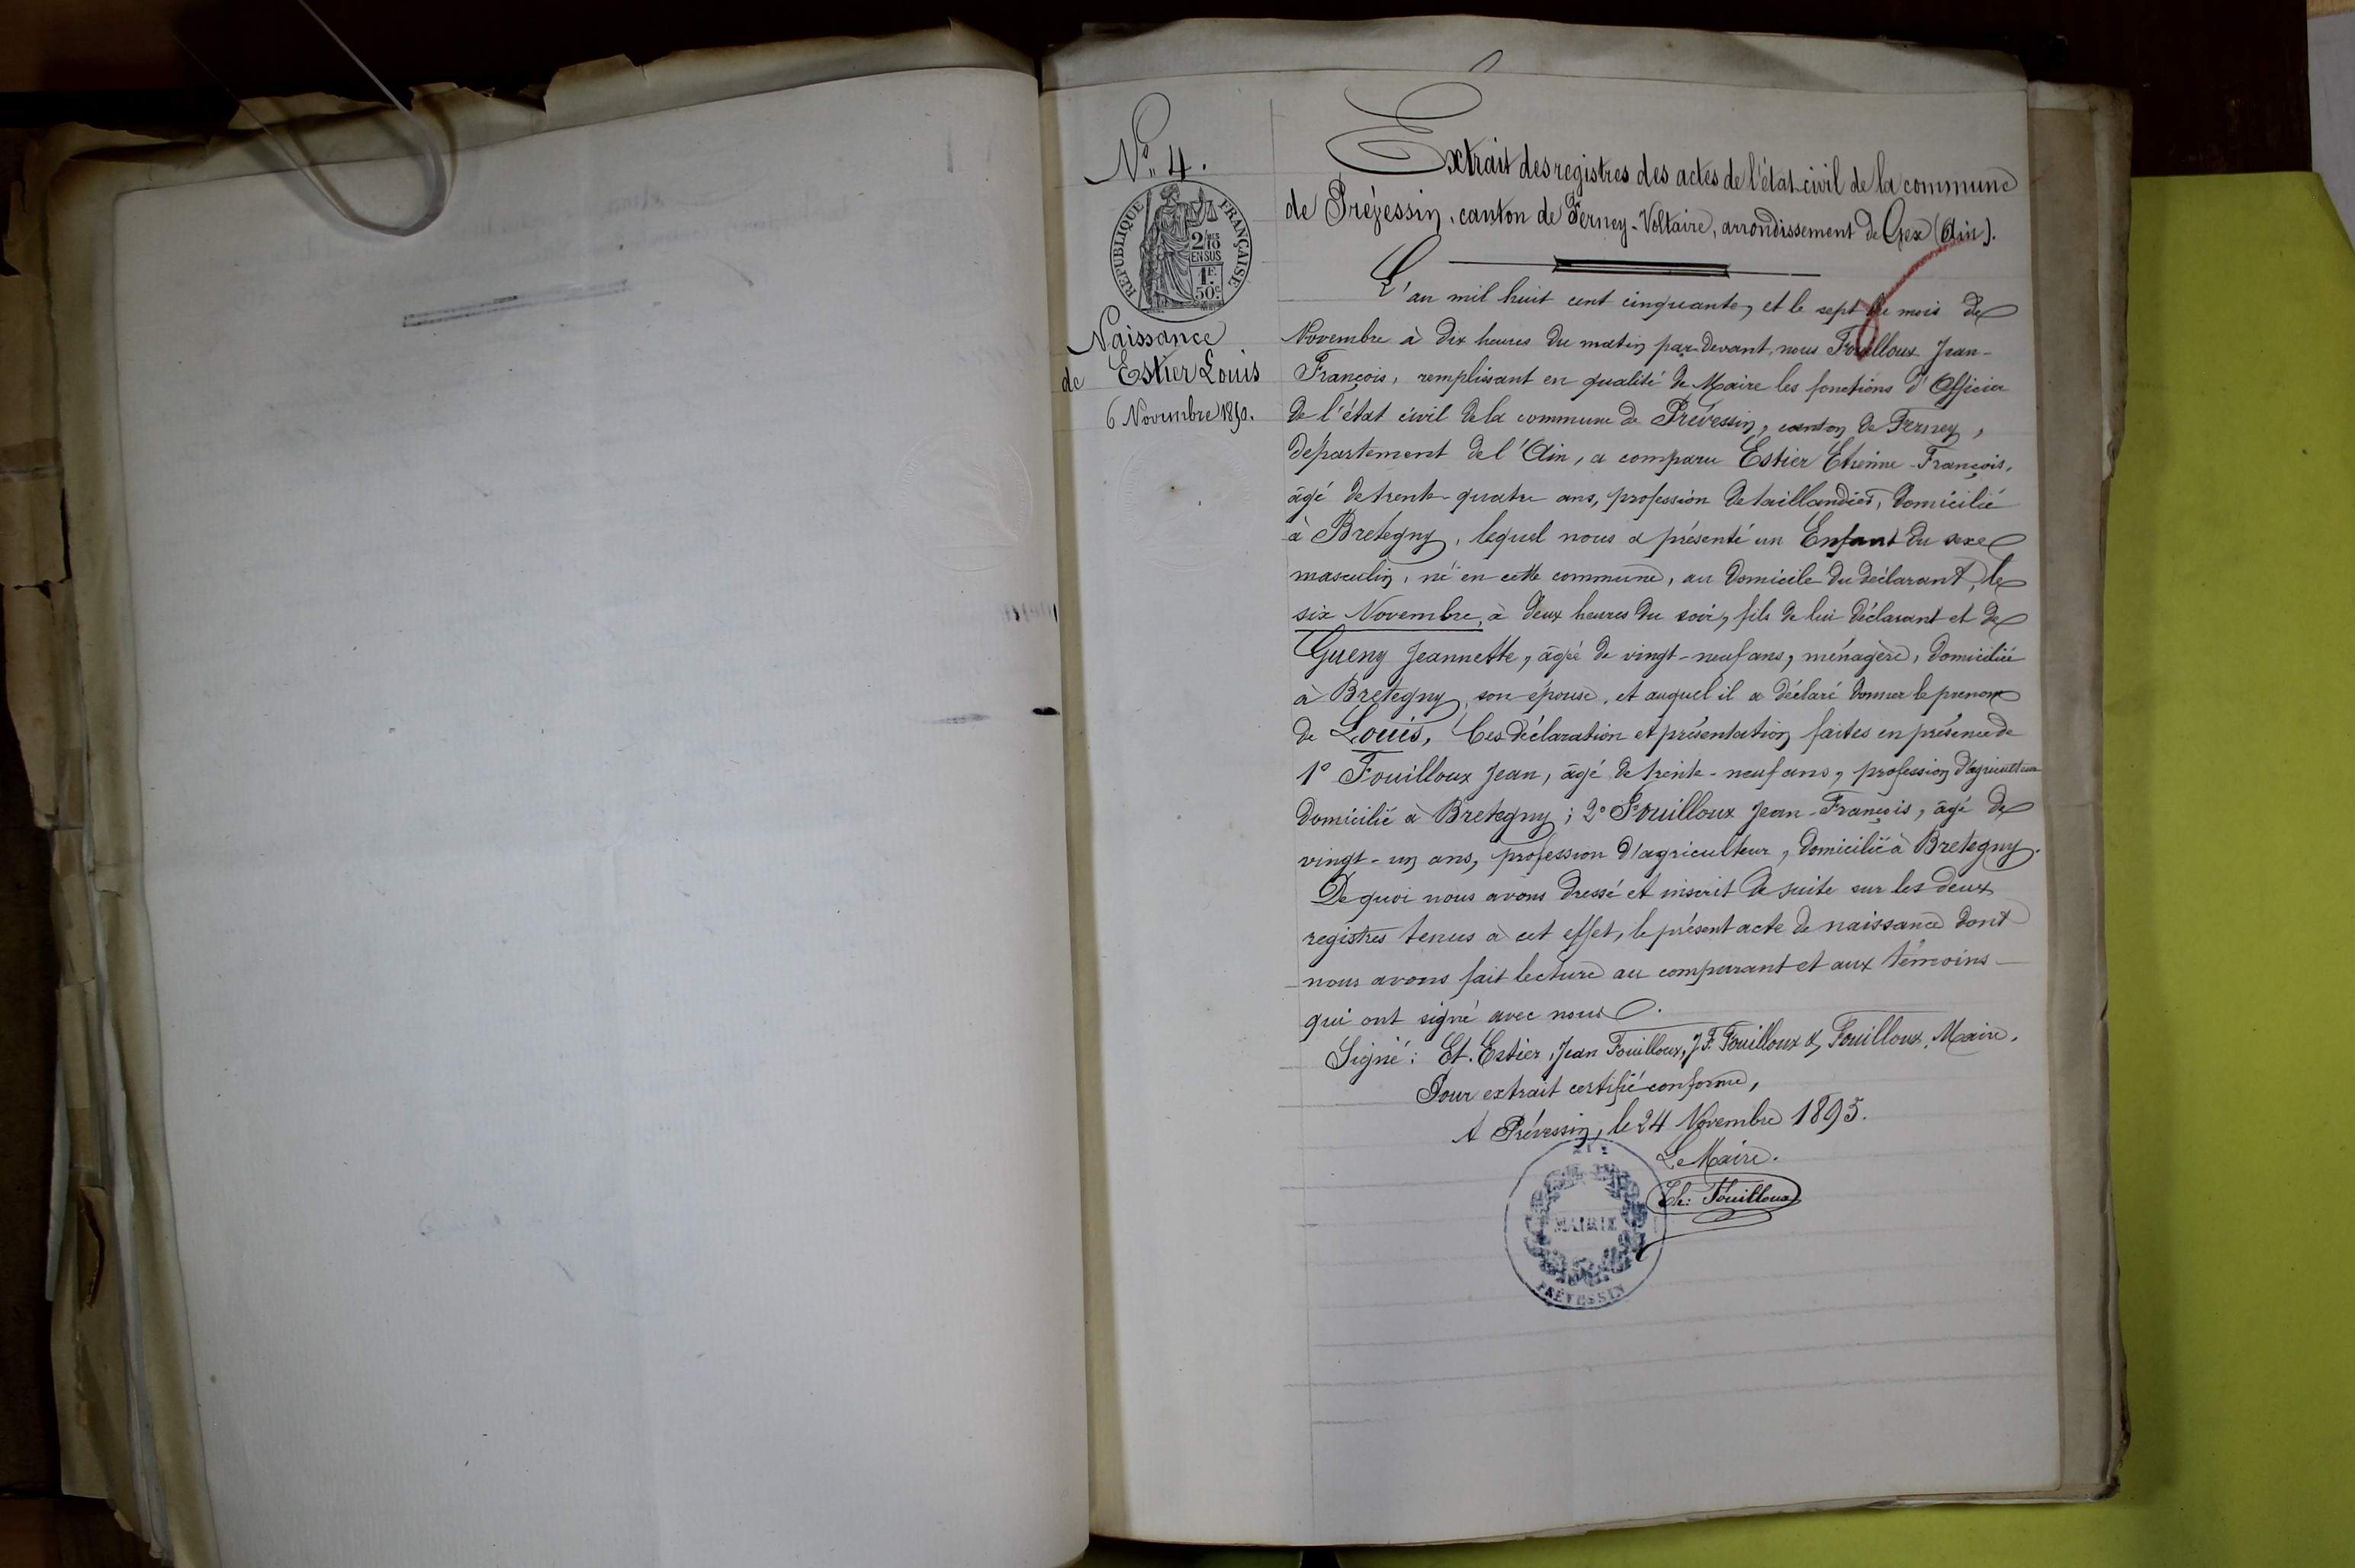 N° 4.
RÉPUBLIQUE FRANÇAISE
2/10
EN SUS
1F.
50c
Naissance
de Estier Louis
6 Novembre 1850.
Extrait des registres des actes de l'état-civil de la commune
de Prévessin, canton de Ferney-Voltaire, arrondissement de Gex (Ain).
L'an mil huit cent cinquante, et le sept du mois de
Novembre à dix heures du matin par devant nous Fouilloux Jean-
François, remplissant en qualité de Maire les fonctions d'Officier
de l'état civil de la commune de Prévessin, canton de Ferney,
département de l'Ain, a comparu Estier Etienne-François,
âgé de trente-quatre ans, profession de taillandier, domicilié
à Bretegny, lequel nous a présenté un Enfant du sexe
masculin, né en cette commune, au domicile du déclarant, le
six Novembre, à deux heures du soir, fils de lui déclarant et de
Gueny Jeannette, âgée de vingt-neuf ans, ménagère, domiciliée
à Bretegny, son épouse, et auquel il a déclaré donner le prenom
de Louis, Ces déclaration et présentation faites en présence de
1° Fouilloux Jean, âgé de trente-neuf ans, profession d'agriculteur
domicilié à Bretegny; 2° Fouilloux Jean-François, âgé de
vingt-un ans, profession d'agriculteur, domicilié à Bretegny.
De quoi nous avons dressé et inscrit de suite sur les deux
registres tenus à cet effet, le présent acte de naissance dont
nous avons fait lecture au comparant et aux témoins
qui ont signé avec nous.
Signé: Et. Estier, Jean Fouilloux, J.F. Fouilloux & Fouilloux, Maire.
Pour extrait certifié conforme,
A Prévessin, le 24 Novembre 1895.
Le Maire.
Ch: Fouilloux
MAIRIE
PRÉVESSIN